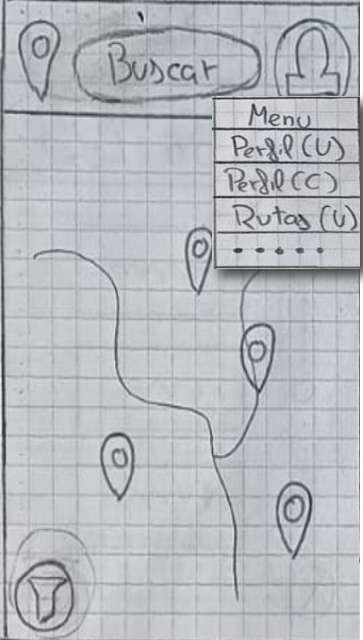 Buscar
Menu
Perfil (U)
Perfil (C)
Rutas (U)
.....